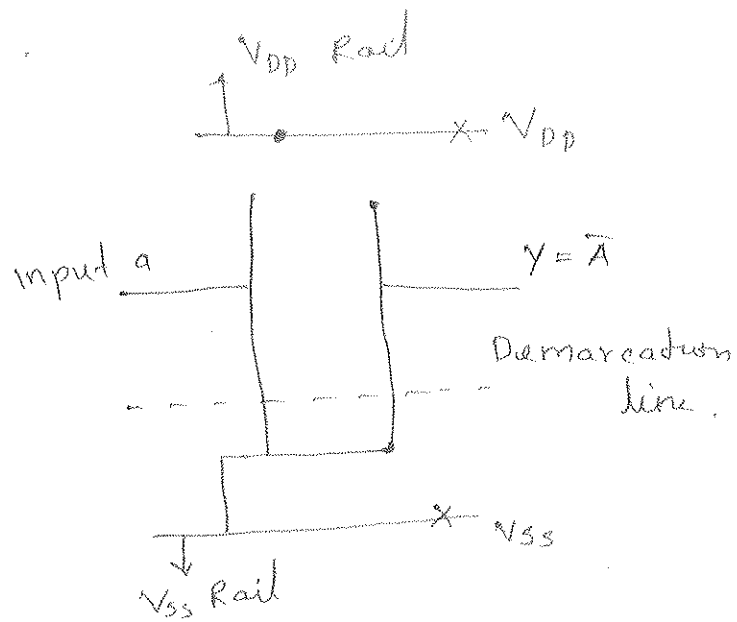 VDD Rail
VDD
input a
Y = A̅
Demarcation
line.
VSS
VSS Rail